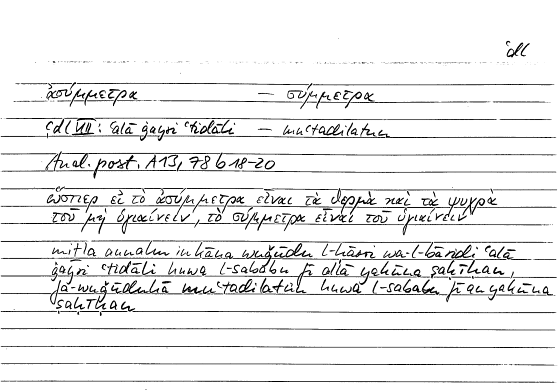 ʿdl
ἀσύμμετρα — σύμμετρα
ʿdl VIII: ʿalā ġayri ʿtidāli — muʿtadilatun
Anal. post. A 13, 78 b 18-20
ὥσπερ εἰ τὸ ἀσύμμετρα εἶναι τὰ θερμὰ καὶ τὰ ψυχρὰ
τοῦ μὴ ὑγιαίνειν, τὸ σύμμετρα εἶναι τοῦ ὑγιαίνειν
miṯla annahu in kāna wuǧūdu l-ḥārri wa-l-bāridi ʿalā
ġayri ʿtidāli huwa l-sababu fī allā yakūna ṣaḥīḥan,
fa-wuǧūduhā muʿtadilatan huwa l-sababu fī an yakūna
ṣaḥīḥan